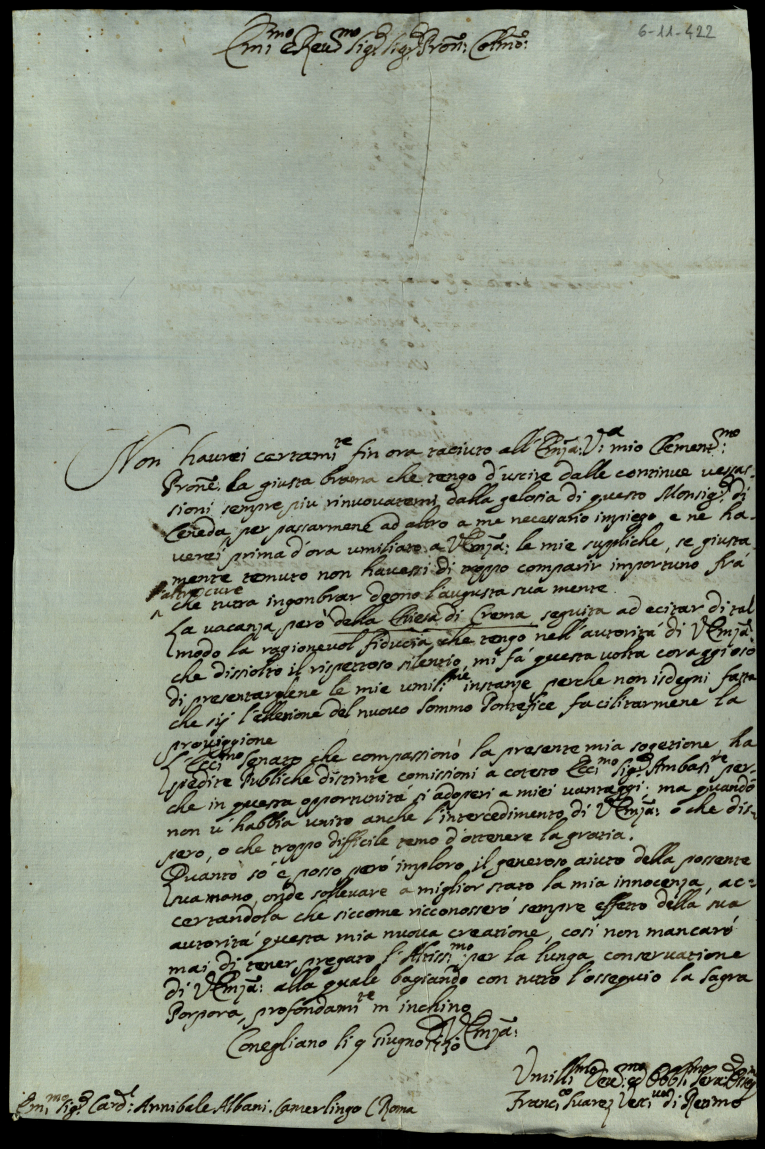 6-11-422
Emi.mo e Reu.mo Sig.r Sig.r Pron: Colmo:
Non haurei certamte fin ora taciuto all'Emza: V.a mio Clement.mo
Prone: la giusta brama che tengo d'uscire dalle continue vessas-
sioni sempre piu rinuouatemi dalla gelosia di questo Monsig.r di
Ceneda, per passarmene ad altro a me necessario impiego e ne ha-
uerei prima d'ora umiliate a VEmza: le mie suppliche, se giusta-
mente temuto non hauessi di troppo comparir importuno frà
l'altre cure
che tutta ingonbrar dgono l'augusta sua mente.
La vacanza però della Chiesa di Crema seguita ad ecitar di tal
modo la ragioneuol fiducia, che tengo nell'autorità di VEmza:
che dissiolto il rispettoso silentio, mi fà questa uolta coraggioso
di presentargliene le mie umilis.me instanze, perche non isdegni fatta
che sij l'ellezione del nuouo Sommo Pontefice facilitarmene la
prouiggione
L'Ecc.mo Senato che compassionò la presente mia sogetione, ha
spedite Publiche distinte comissioni a cotesto Ecc.mo Sig.r Ambas.re per-
che in questa opportunità s'adoperi a miei uantaggi: ma quando
non u'habbia unito anche l'intercedimento di VEmza: o che dis-
pero, o che troppo difficile temo d'ottenere la grazia.
Quanto sò e posso però imploro il generoso aiuto della possente
sua mano, onde solleuare a miglior stato la mia innocenza, ac-
certandola che siccome ricconosserò sempre effetto della sua
autorità questa mia nuoua creatione, così non mancarò
mai di tener pregato l'Altiss.mo per la lunga conseruatione
di VEmza: alla quale bagiando con tutto l'ossequio la Sagra
Porpora, profondamte m'inchino
Di VEmza:
Conegliano li 9 Giugno 1730
Umilis.mo Deu.mo Oblig.mo Ser.
Franc.co Suarez Vesc.uo di Retimo
Emi.mo Sig.r Card.l: Annibale Albani. Camerlingo (Roma